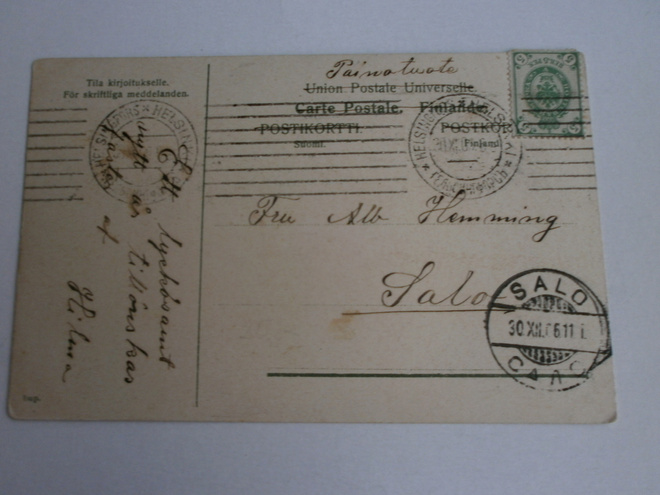 Tila kirjoitukselle.
För skriftliga meddelanden.
Painotuota
Union Postale Universelle.
Carte Postale. Finlande.
POSTIKORTTI. POSTKOR
Suomi. Finland
HELSINGFORS * HELSINKI
Ett lyckosamt
nytt år tillönskas
af
Hilma
Fru Alb Hemming
Salo
SALO
30.XII.06.11
САЛО
Imp.